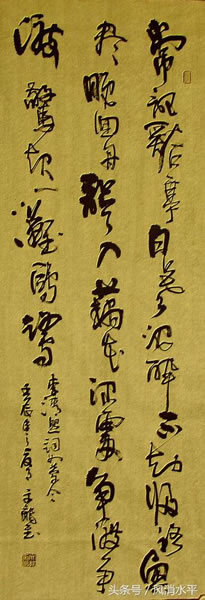 常記谿亭日暮沉醉不知歸路興
盡晚回舟誤入藕花深處爭渡爭
渡驚起一灘鷗鷺
李清照詞如夢令
壬辰年
头条号/风消水平